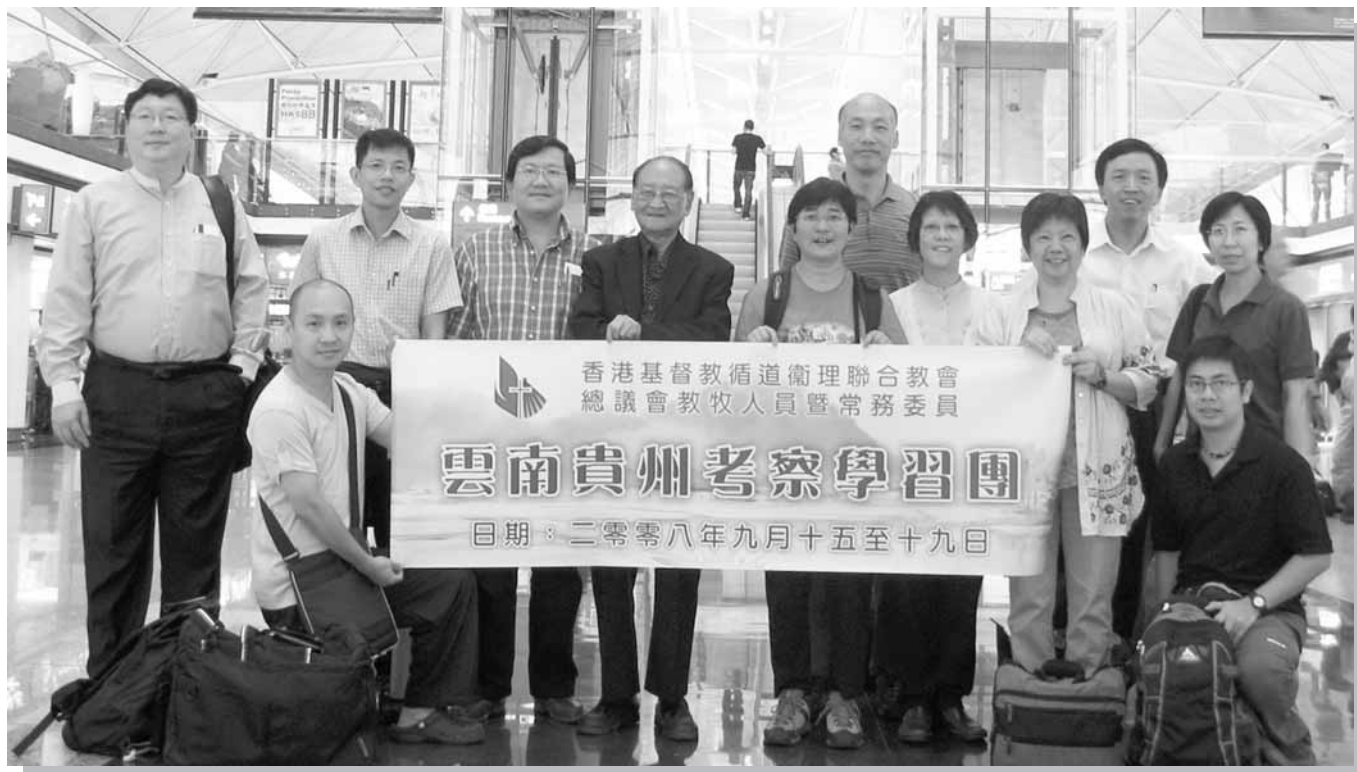 香港基督教循道衞理聯合教會
總議會教牧人員暨常務委員
雲南貴州考察學習團
日期：二零零八年九月十五至十九日